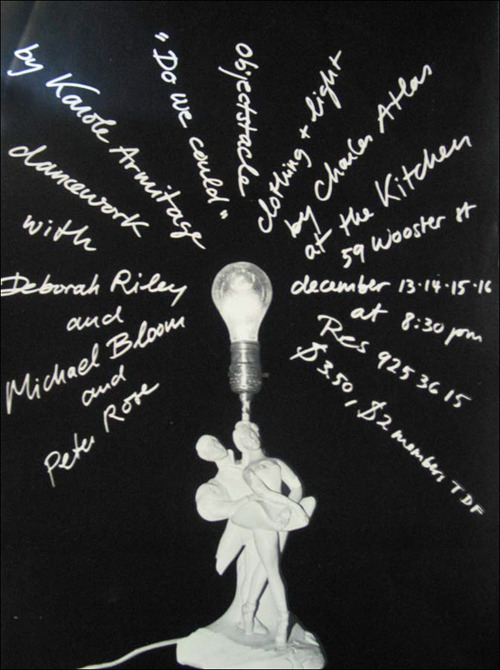 "Do we could"
by Karole Armitage
dancework
with
Deborah Riley
and
Michael Bloom
and
Peter Rose
objectstacle
clothing + light
by Charles Atlas
at the Kitchen
59 Wooster st
december 13·14·15·16
at 8:30 pm
Res 925 3615
$3.50, $2 members, TDF